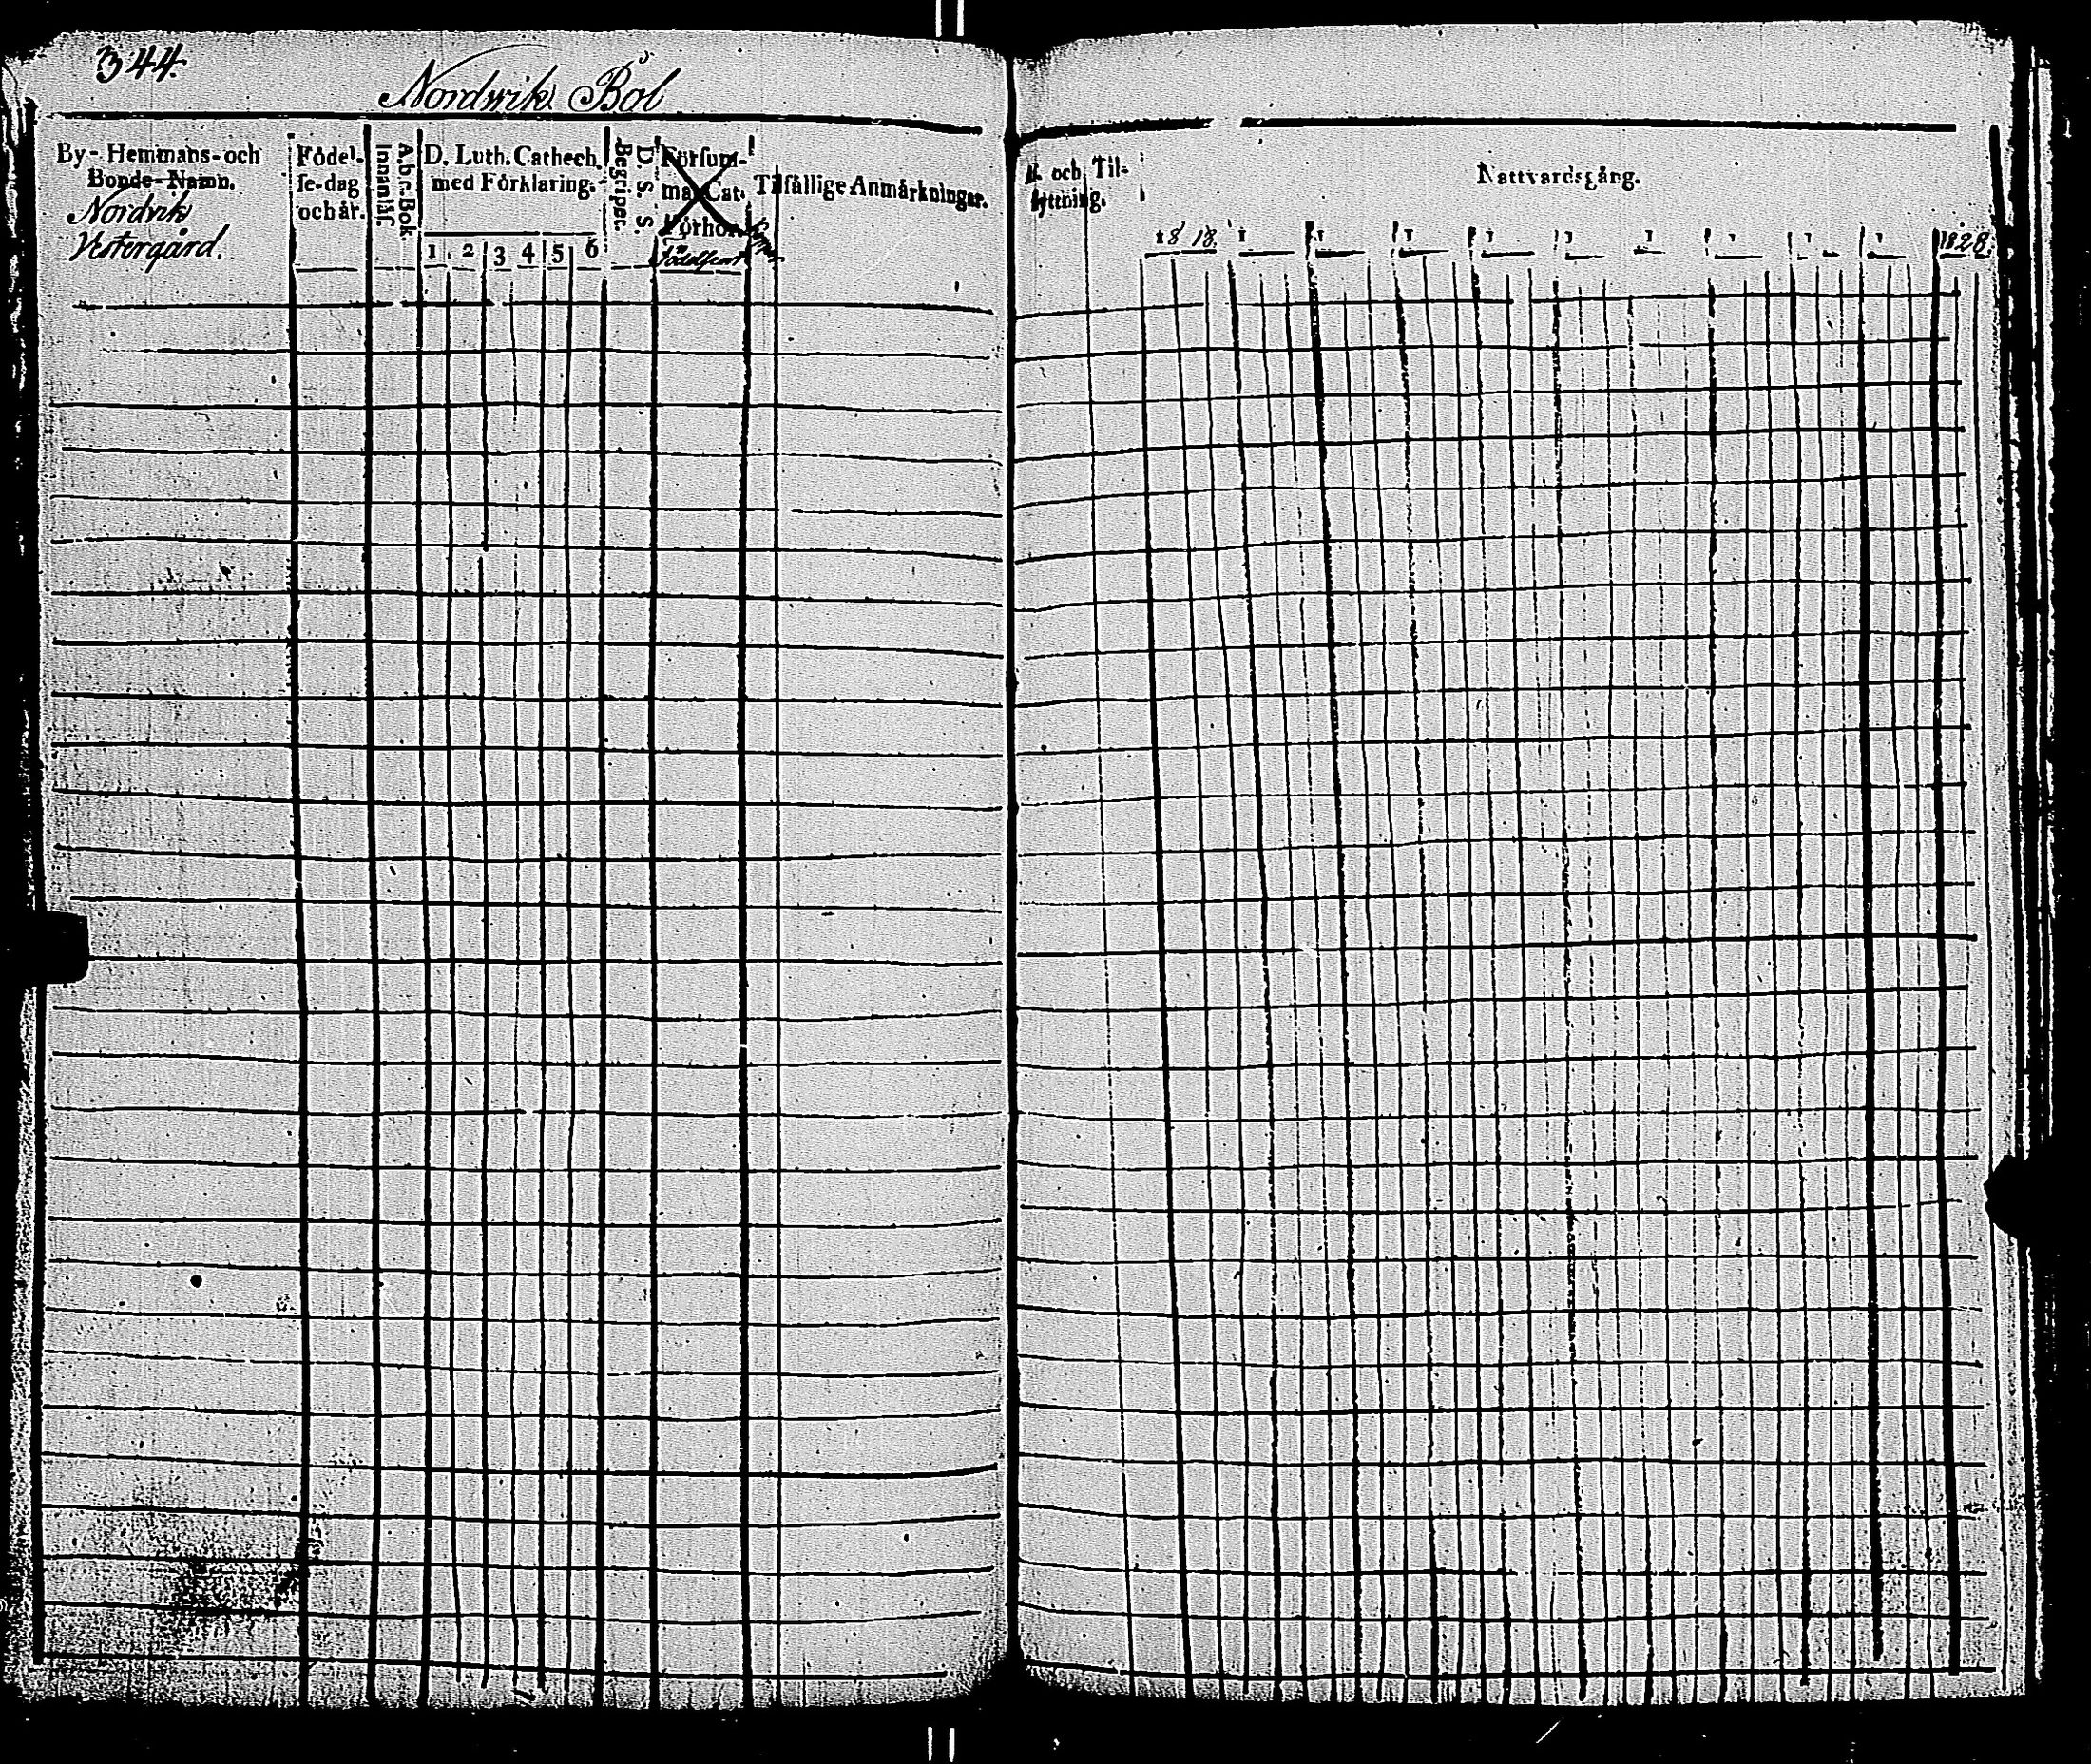 344.
Nordwik Bol
By-Hemmans-och
Bonde-Namn.
Nordvik
Westergård.
Födel-
se-dag
och år.
A.b.c-Bok.
Innanläs.
D. Luth. Cathech.
med Förklaring.
1 2 3 4 5 6
D. S. S.
Begripet.
Försum-
mat Cat.
Förhör.
Födelseort
Tilfällige Anmärkningar.
och Til-
flyttning.
Nattvardsgång.
1818. 1 1 1 1 1 1 1 1 1 1828.